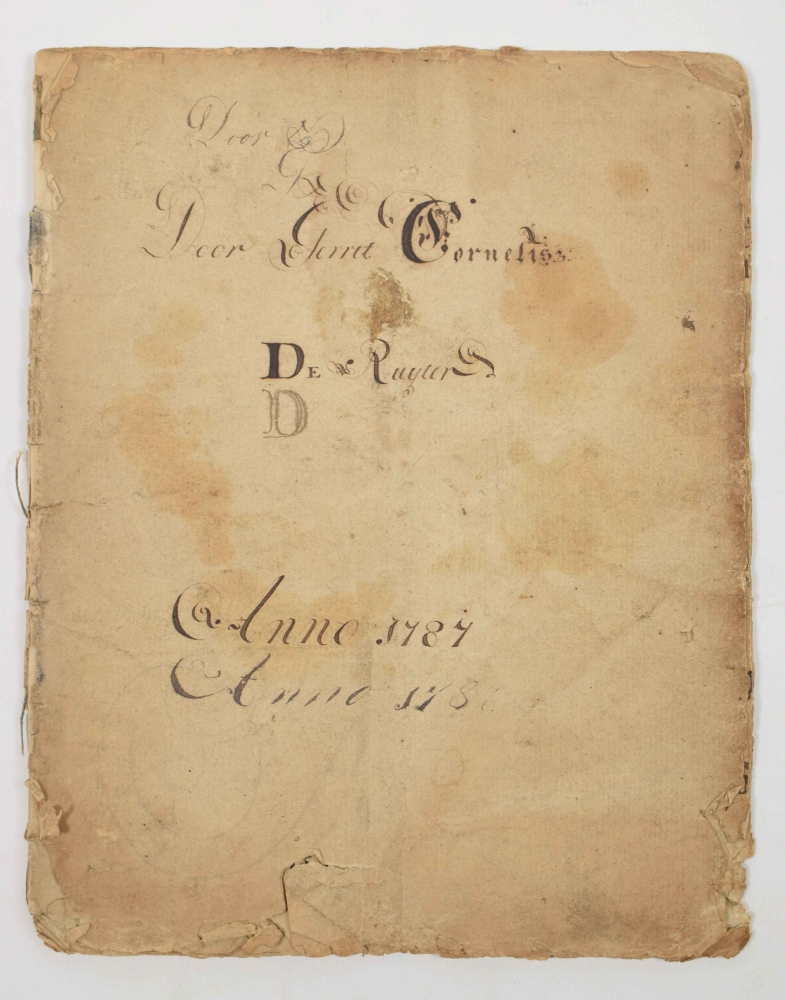 Door
G
Door Gerrit Cornelisz:
DE Ruyter
D
Anno 1787
Anno 178